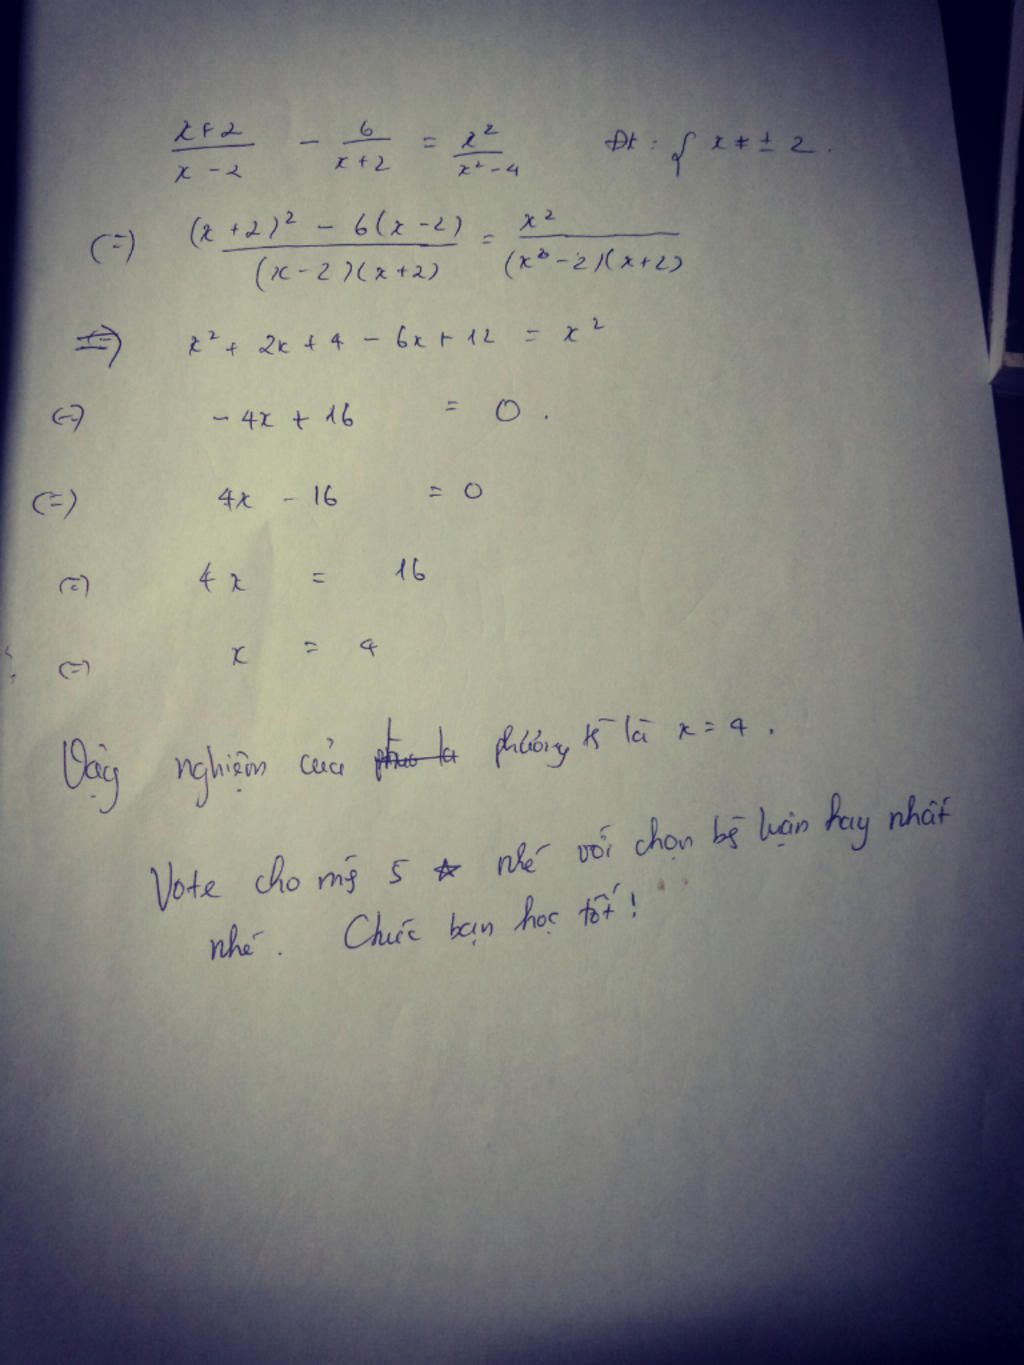 x+2/x-2 - 6/x+2 = x²/x²-4 Đk: { x ≠ ± 2.
(=) (x+2)² - 6(x-2)/(x-2)(x+2) = x²/(x-2)(x+2)
=) x² + 2x + 4 - 6x + 12 = x²
(=) - 4x + 16 = 0.
(=) 4x - 16 = 0
(=) 4x = 16
(=) x = 4
Vậy nghiệm của phương là x = 4.
Vote cho mg 5 ☆ nhé với chọn luận hay nhất
nhé. Chúc bạn học tốt!